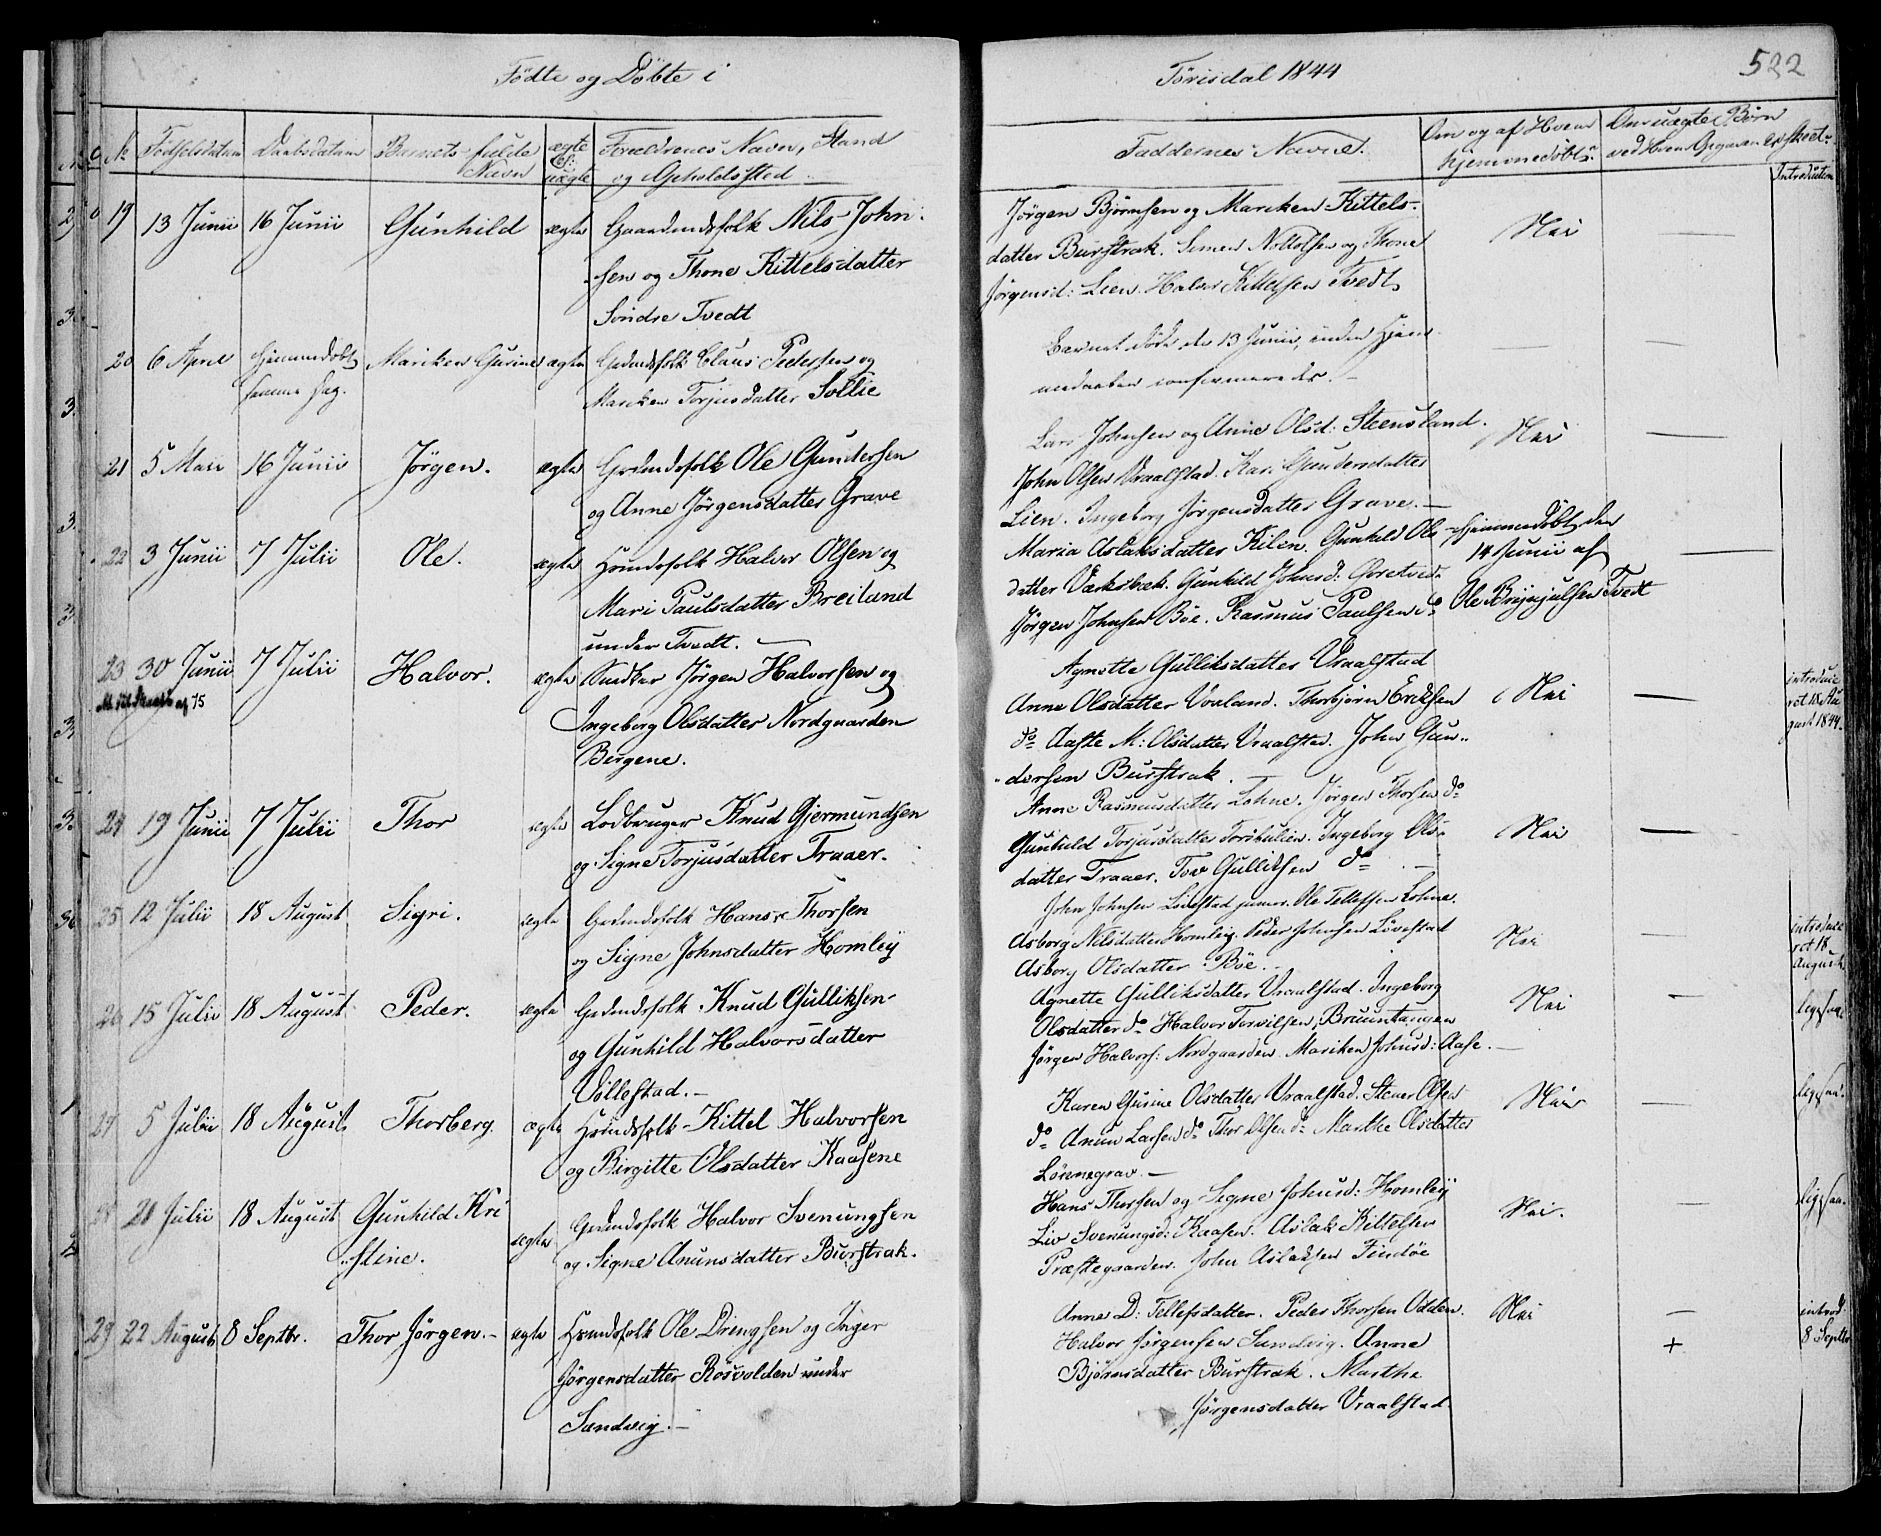 Födte og Döbte i
Törisdal 1844
522
No
Födselsdatum
Daabsdatum
Barnets fulde Navn
ægte el: uægte
Forældrenes Navn, Stand
og Opholdssted
Faddernes Navne.
Om og af Hvem
hjemmedöbt
Om uægte Börn
ved Hvem Opgaven er skeet
Introduction
19 13 Junii 16 Junii Gunhild ægte Gaardmdsfolk Nils John-
sen og Thone Kittelsdatter
Söndre Tvedt
Jörgen Björnsen og Mariken Kittels-
datter Burstrak. Simen Nottolfsen og Thone
Jörgensd: Lien. Halvor Kittelsen Tvedt
Nei
20 6 April hjemmedöbt Mariken Gurine ægte Grdmdsfolk Claus Pedersen og
samme Dag.
Mariken Torjusdatter Sollie
Barnet döde den 13 Junii, inden Hjem-
medaaben confirmeredes.
21 5 Mai 16 Junii Jörgen. ægte Grdmdsfolk Ole Gundersen
og Anne Jörgensdatter Grave
Lars Johnsen og Anne Olsd: Steensland.
John Olsen Vraalstad. Kari Gundersdatter
Lien. Ingeborg Jörgensdatter Grave.
Nei
22 3 Junii 7 Julii Ole. ægte Hsmdsfolk Halvor Olsen og
Mari Paulsdatter Breiland
under Tvedt.
Maria Aslaksdatter Kilen. Gunhild Ols-
datter Værksbæk. Gunhild Johnsd:
Jörgen Johnsen Böe. Rasmus Paulsen do
Hjemmedöbt den
14 Junii af
Ole Brynjulsen Tvedt
23 30 Junii 7 Julii Halvor. ægte Jörgen Halvorsen og
Ingeborg Olsdatter Nordgaarden
Bergene.
75
Agnette Gulliksdatter Vraalstad
Anne Olsdatter Voxland. Thorbjörn Eriksen
do Aaste M: Olsdatter Vraalstad. John Gun-
dersen Burstrak.
Nei
introduce-
ret 18 Au-
gust 1844.
24 19 Junii 7 Julii Thor ægte Lodbruger Knud Gjermundsen
og Signe Torjusdatter Traaer.
Anne Rasmusdatter Lohne. Jörgen Thorsen do
Gunhild Torjusdatter Torskulien. Ingeborg Ols-
datter Traaer. Tov Gulliksen do
Nei
25 12 Julii 18 August Sigri. ægte Grdmdsfolk Hans Thorsen
og Signe Johnsdatter Homleij
John Johnsen Lövestad junior. Ole Tellefsen Lohne.
Asborg Nilsdatter Homleij. Peder Johnsen Lövestad
Asborg Olsdatter Böe.
Nei
introduce-
ret 18
August
26 15 Julii 18 August Peder. ægte Grdmdsfolk Knud Gulliksen
og Gunhild Halvorsdatter
Völlestad.
Agnette Gulliksdatter Vraalstad. Ingeborg
Olsdatter do Halvor Torvilsen, Bruuntangen
Jörgen Halvors: Nordgaarden. Mariken Johnsd: Aase.
Nei
ligesaa.
27 5 Julii 18 August Thorberg. ægte Hsmdsfolk Kittel Halvorsen
og Birgitte Olsdatter Kaasene
Karen Gurine Olsdatter Vraalstad. Stener Olsen
do Anun Larsen do Thor Olsen do Marthe Olsdatter
Lönnegrav.
Nei
ligesaa.
28 20 Julii 18 August Gunhild Kri-
stine.
ægte Grdmdsfolk Halvor Svenungsen
og Signe Anunsdatter Burstrak.
Hans Thorsen og Signe Johnsd: Homleij
Liv Svenungsd: Kaasen. Aslak Kittelsen
Præstegaarden. John Aslaksen Findöe
Nei.
ligesaa.
29 22 August 8 Septbr. Thor Jörgen. ægte Hsmdsfolk Ole Drengsen og Inger
Jörgensdatter Rösvolden under
Sandvig.
Anne D: Tellefsdatter. Peder Thorsen Odden.
Halvor Jörgensen Sandvig. Anne
Björnsdatter Burstrak. Marthe
Jörgensdatter Vraalstad
Nei
+
introd:
8 Septbr